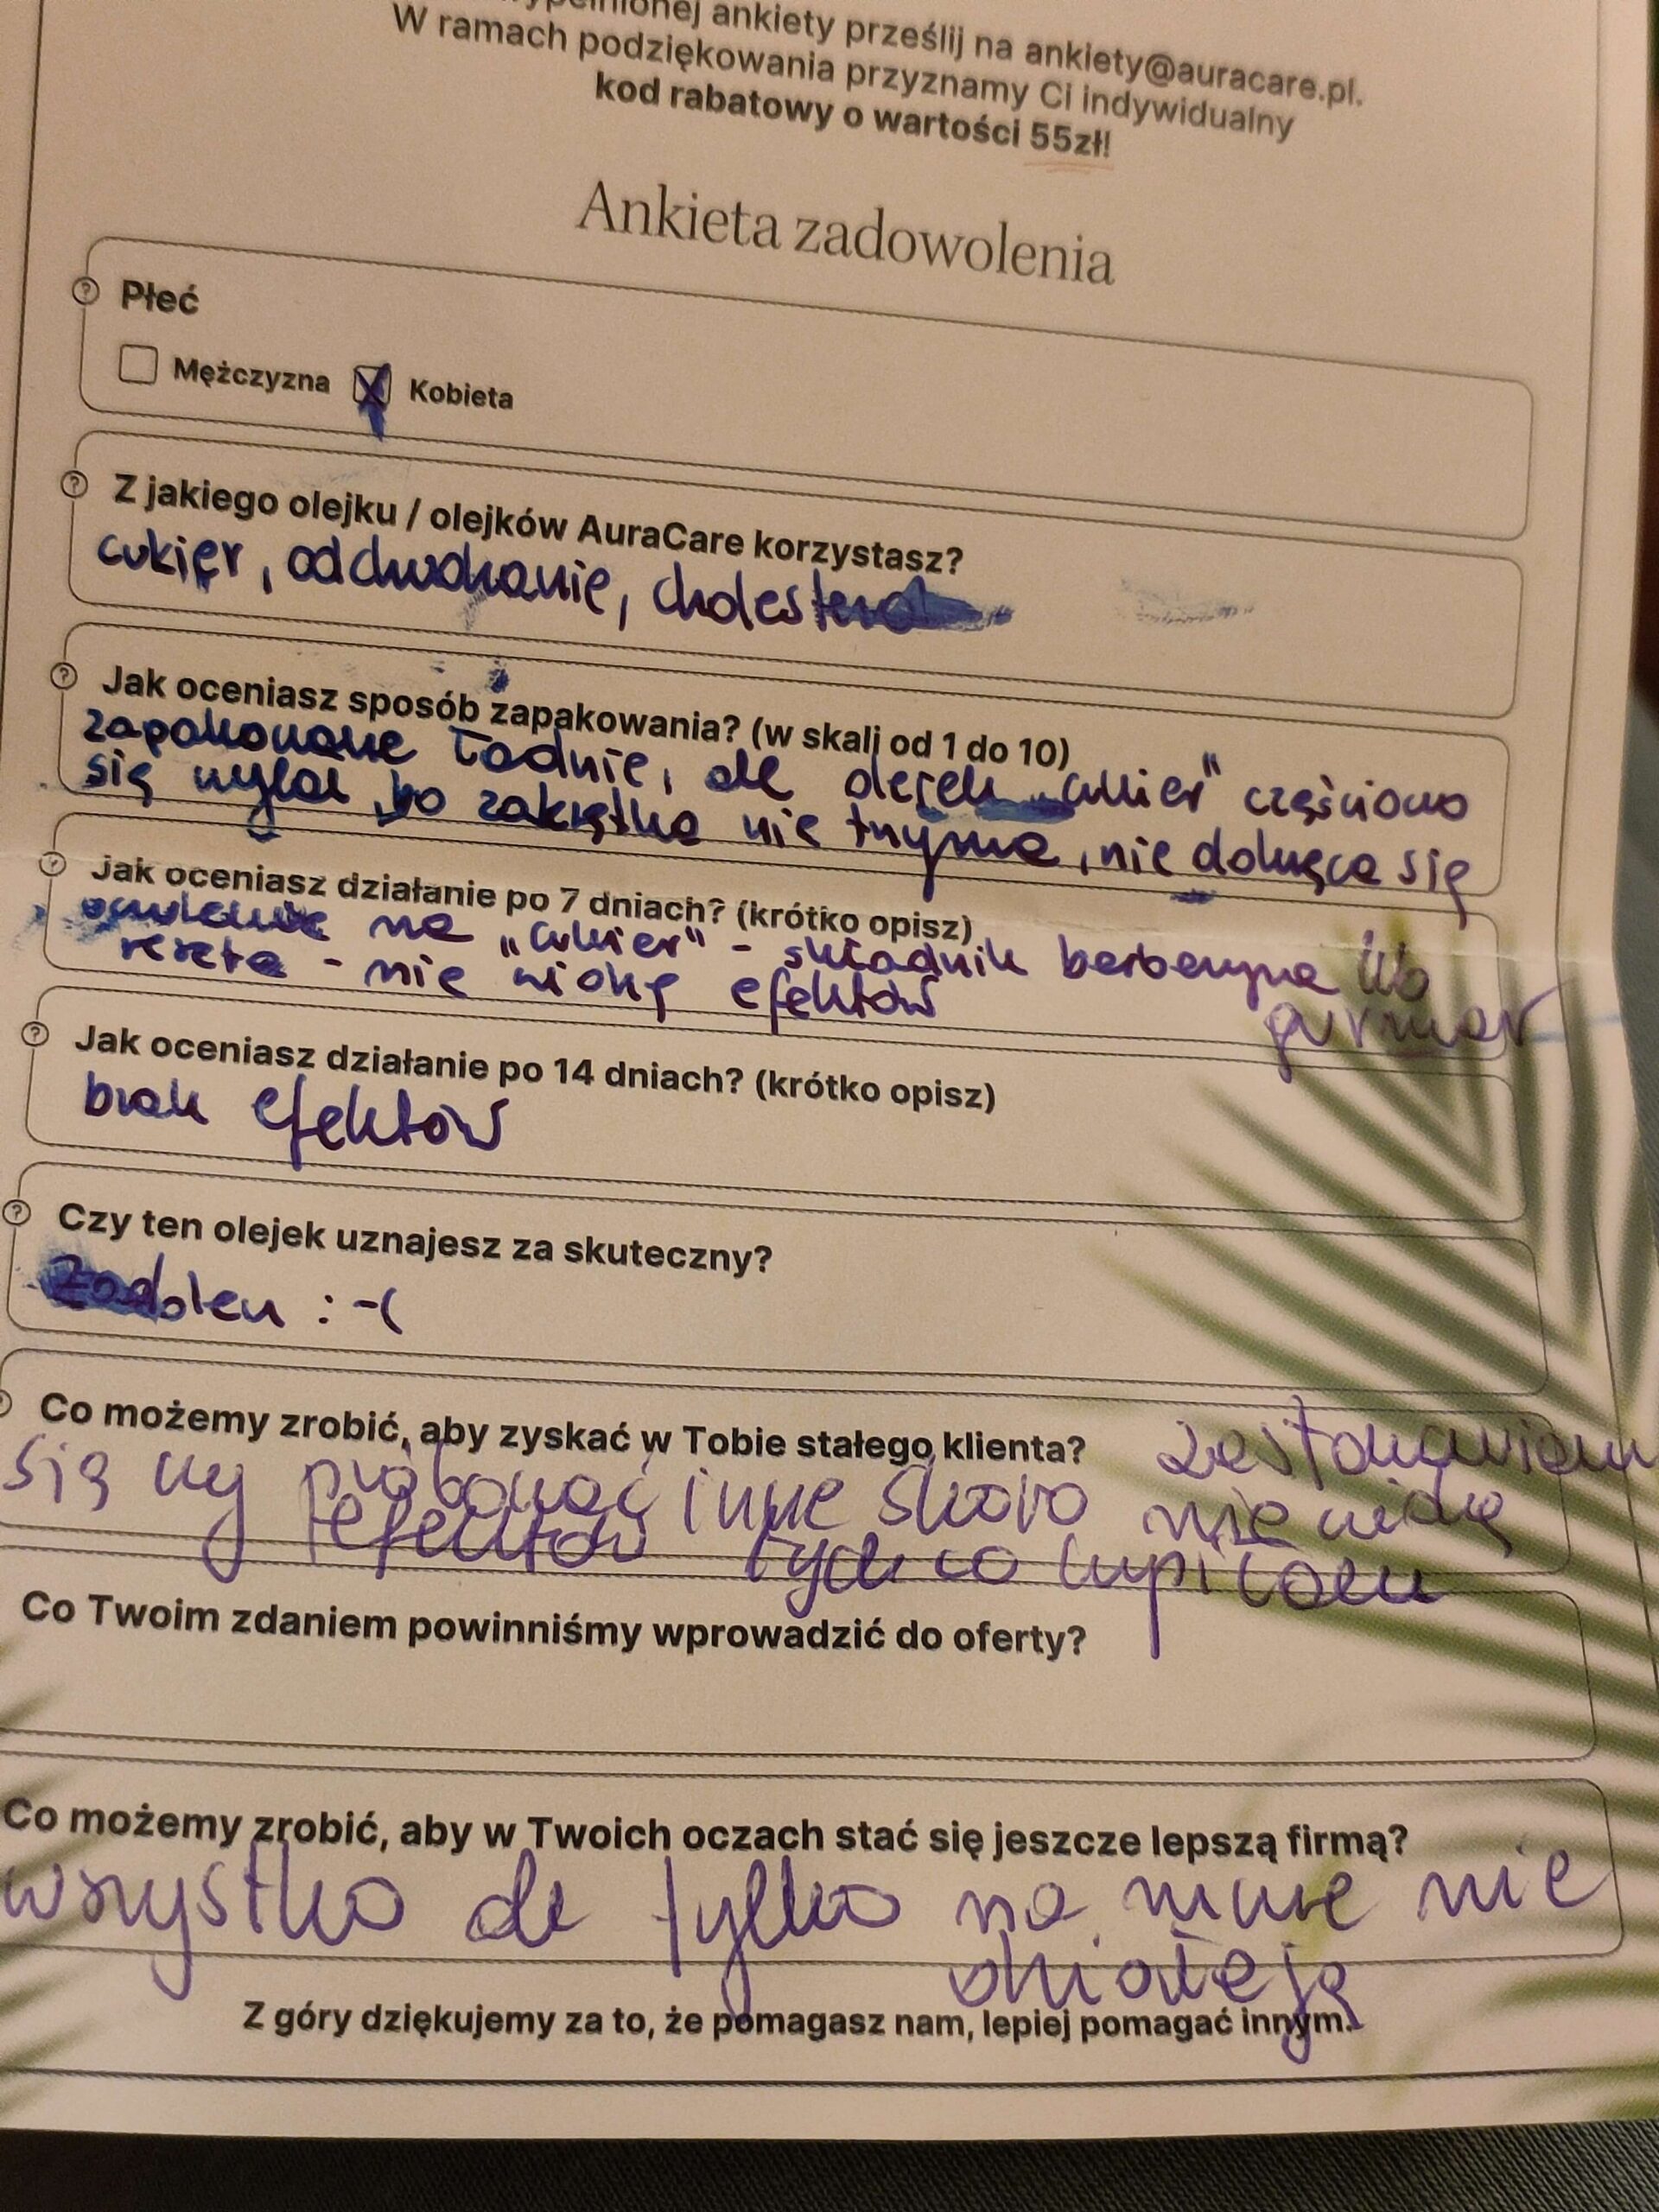 wypełnionej ankiety prześlij na ankiety@auracare.pl.
W ramach podziękowania przyznamy Ci indywidualny
kod rabatowy o wartości 55zł!
Ankieta zadowolenia
Płeć
Mężczyzna Kobieta
Z jakiego olejku / olejków AuraCare korzystasz?
cukier, odchudzanie, cholesterol
Jak oceniasz sposób zapakowania? (w skali od 1 do 10)
zapakowane ładnie, ale olejek "cukier" częściowo
się wylał bo zakrętka nie trzyma, nie dokręca się
Jak oceniasz działanie po 7 dniach? (krótko opisz)
uczulenie na "cukier" - składnik berberyna lub
gurmar
reszta - nie widzę efektów
Jak oceniasz działanie po 14 dniach? (krótko opisz)
brak efektów
Czy ten olejek uznajesz za skuteczny?
Żaden :-(
Co możemy zrobić, aby zyskać w Tobie stałego klienta? zastanawiam
się czy próbować inne skoro nie widzę
efektów tych co kupiłam
Co Twoim zdaniem powinniśmy wprowadzić do oferty?
Co możemy zrobić, aby w Twoich oczach stać się jeszcze lepszą firmą?
wszystko ok tylko na mnie nie
działają
Z góry dziękujemy za to, że pomagasz nam, lepiej pomagać innym.